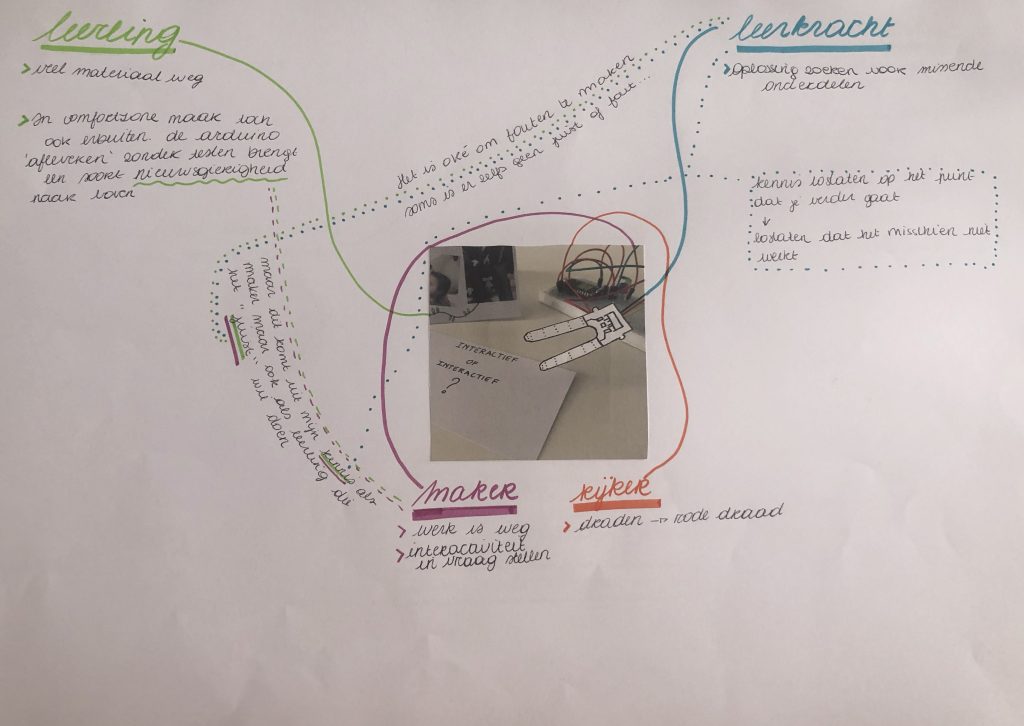 leerling
> veel materiaal weg
> In comfortzone maak van
ook erbuiten. de arduino
'afleveren' zonder testen brengt
een soort nieuwsgierigheid
naar voren
Het is oké om fouten te maken
soms is er zelfs geen juist of fout...
leerkracht
> Oplossing zoeken voor missende
onderdelen
kennis loslaten op het punt
dat je verder gaat
↓
loslaten dat het misschien niet
werkt
maar dit komt uit mijn kennis als
maker maar ook als leerling die
het "juist" wil doen
INTERACTIEF
OF
INTERACTIEF
?
maker
> werk is weg
> interacaviteit
in vraag stellen
kijker
> draden → rode draad